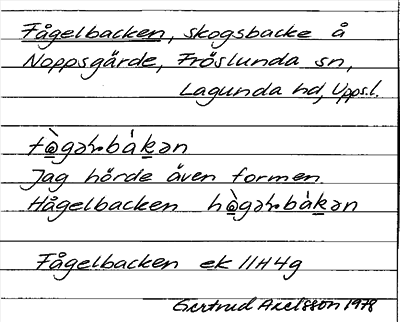 Fågelbacken, skogsbacke å
Noppsgärde, Fröslunda sn,
Lagunda hd, Upps.l.
fὰ̲gəɫbák̲ən
Jag hörde även formen
Hågelbacken hὰ̲gəɫbák̲ən
Fågelbacken ek 11H4g
Gertrud Axelsson 1978